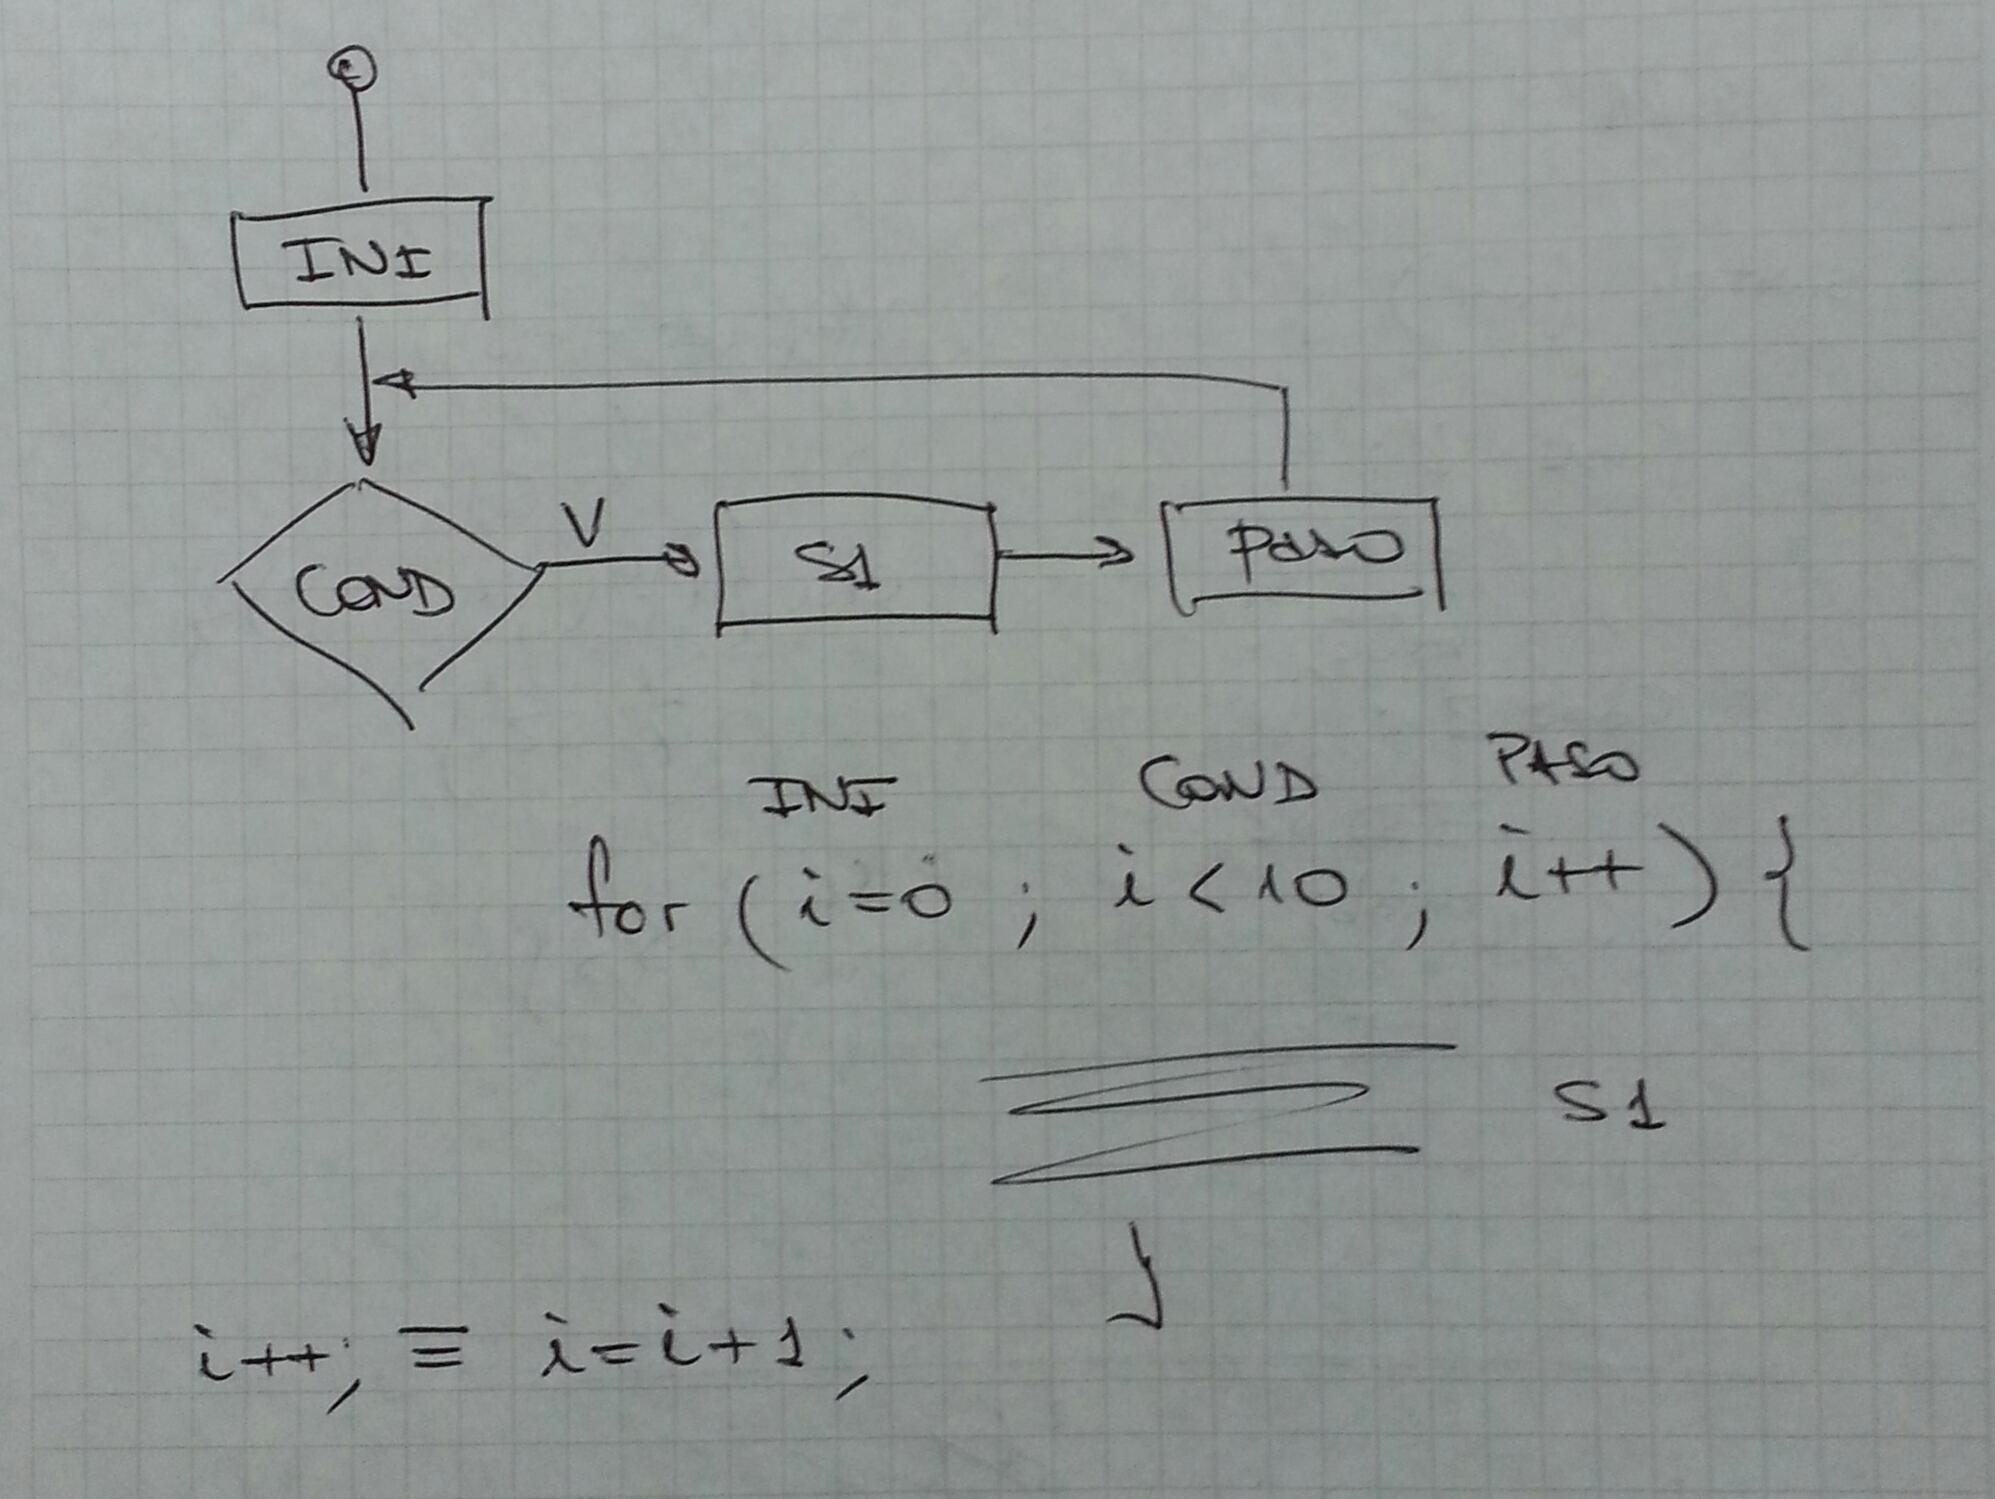 INI
V
COND
S1
PASO
INI COND PASO
for (i=0 ; i<10 ; i++) {
S1
}
i++; ≡ i=i+1;